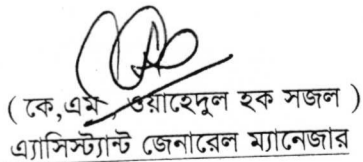 ( কে,এম, ওয়াহেদুল হক সজল )
এ্যাসিস্ট্যান্ট জেনারেল ম্যানেজার